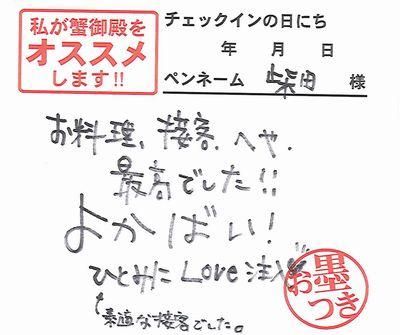 私が蟹御殿を
オススメ
します!!
チェックインの日にち
年 月 日
ペンネーム 柴田 様
お料理、接客、へや、
最高でした!!
よかばい!
ひとみに Love 注入
素直な接客でした。
お墨つき